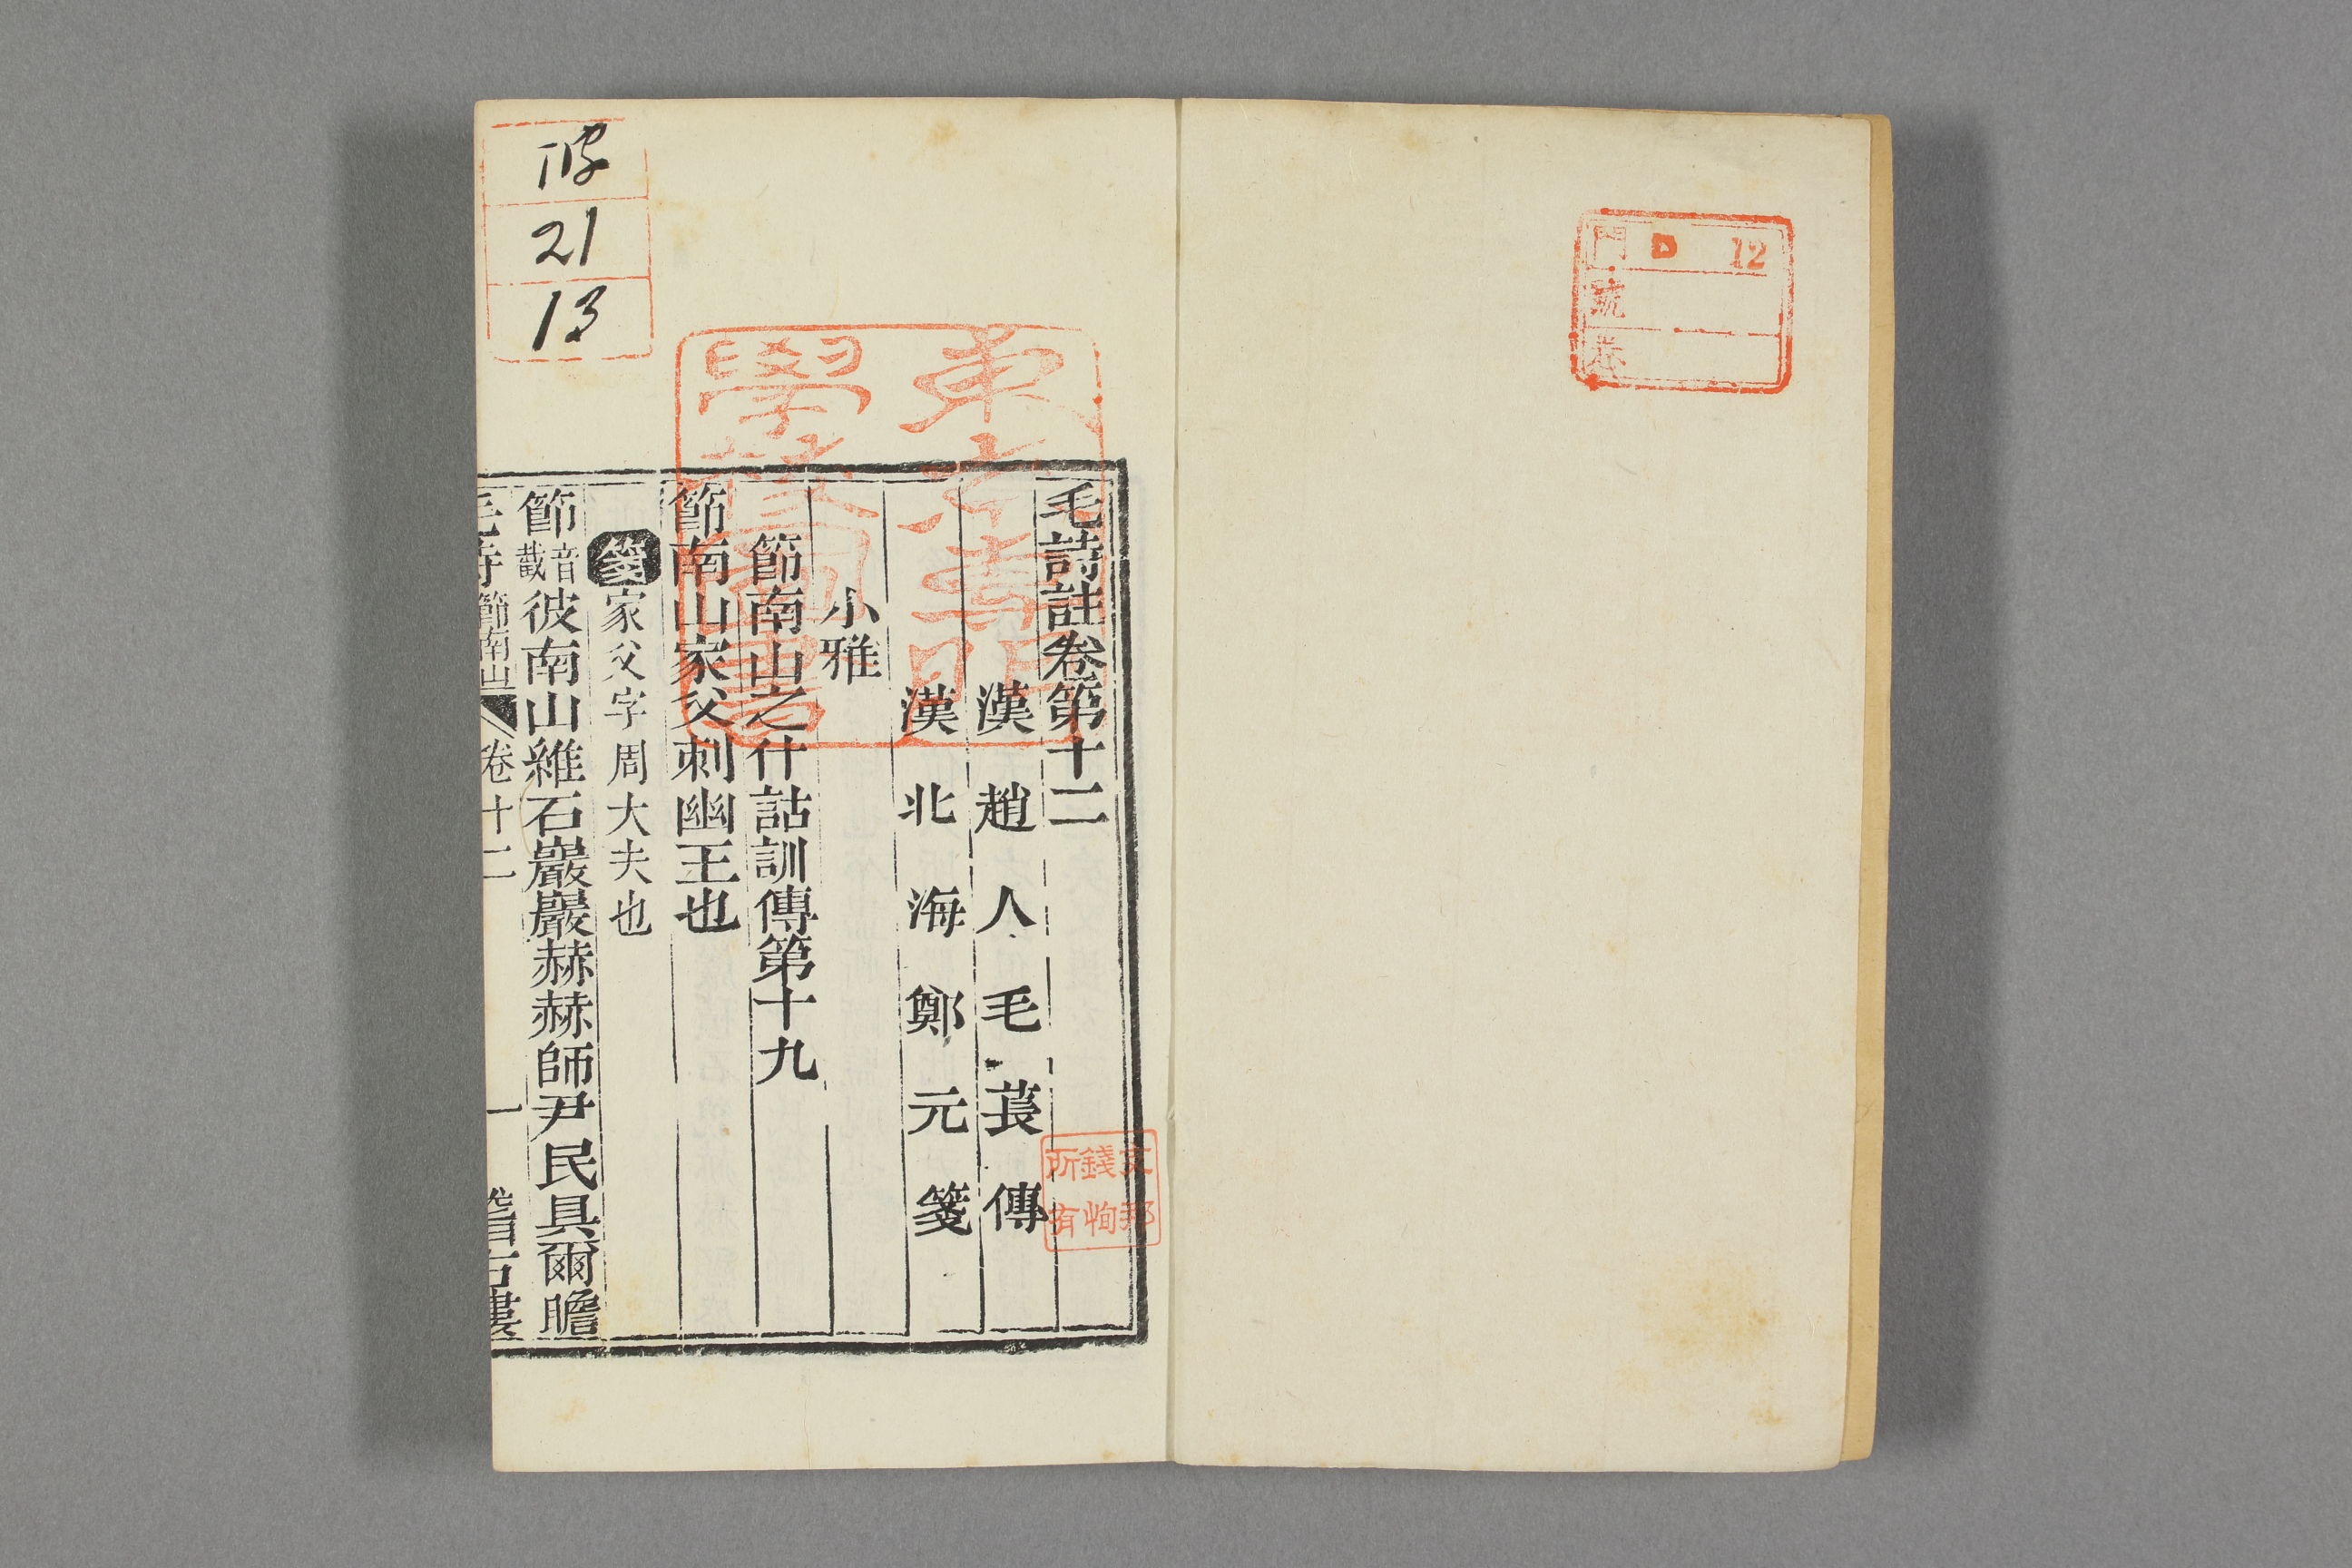 門 D 12
號
毛詩註卷第十二
漢趙人毛萇傳
漢北海鄭元箋
小雅
節南山之什詁訓傳第十九
節南山家父刺幽王也
箋家父字周大夫也
節音截彼南山維石巖巖赫赫師尹民具爾瞻
毛詩 節南山 卷十二 一 稽古樓
文邦
錢恂
所有
21
13